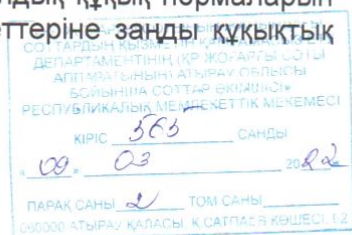 құқық нормаларын
заңды құқықтық
СОТТАРДЫҢ ҚЫЗМЕТІН
ДЕПАРТАМЕНТІНІҢ (ҚР ЖОҒАРҒЫ СОТЫ
АППАРАТЫНЫҢ) АТЫРАУ ОБЛЫСЫ
БОЙЫНША СОТТАР ӘКІМШІСІ»
РЕСПУБЛИКАЛЫҚ МЕМЛЕКЕТТІК МЕКЕМЕСІ
КІРІС 565 САНДЫ
« 09 » 03 2022
ПАРАҚ САНЫ 2 ТОМ САНЫ
060000 АТЫРАУ ҚАЛАСЫ, Қ.САТПАЕВ КӨШЕСІ, 52